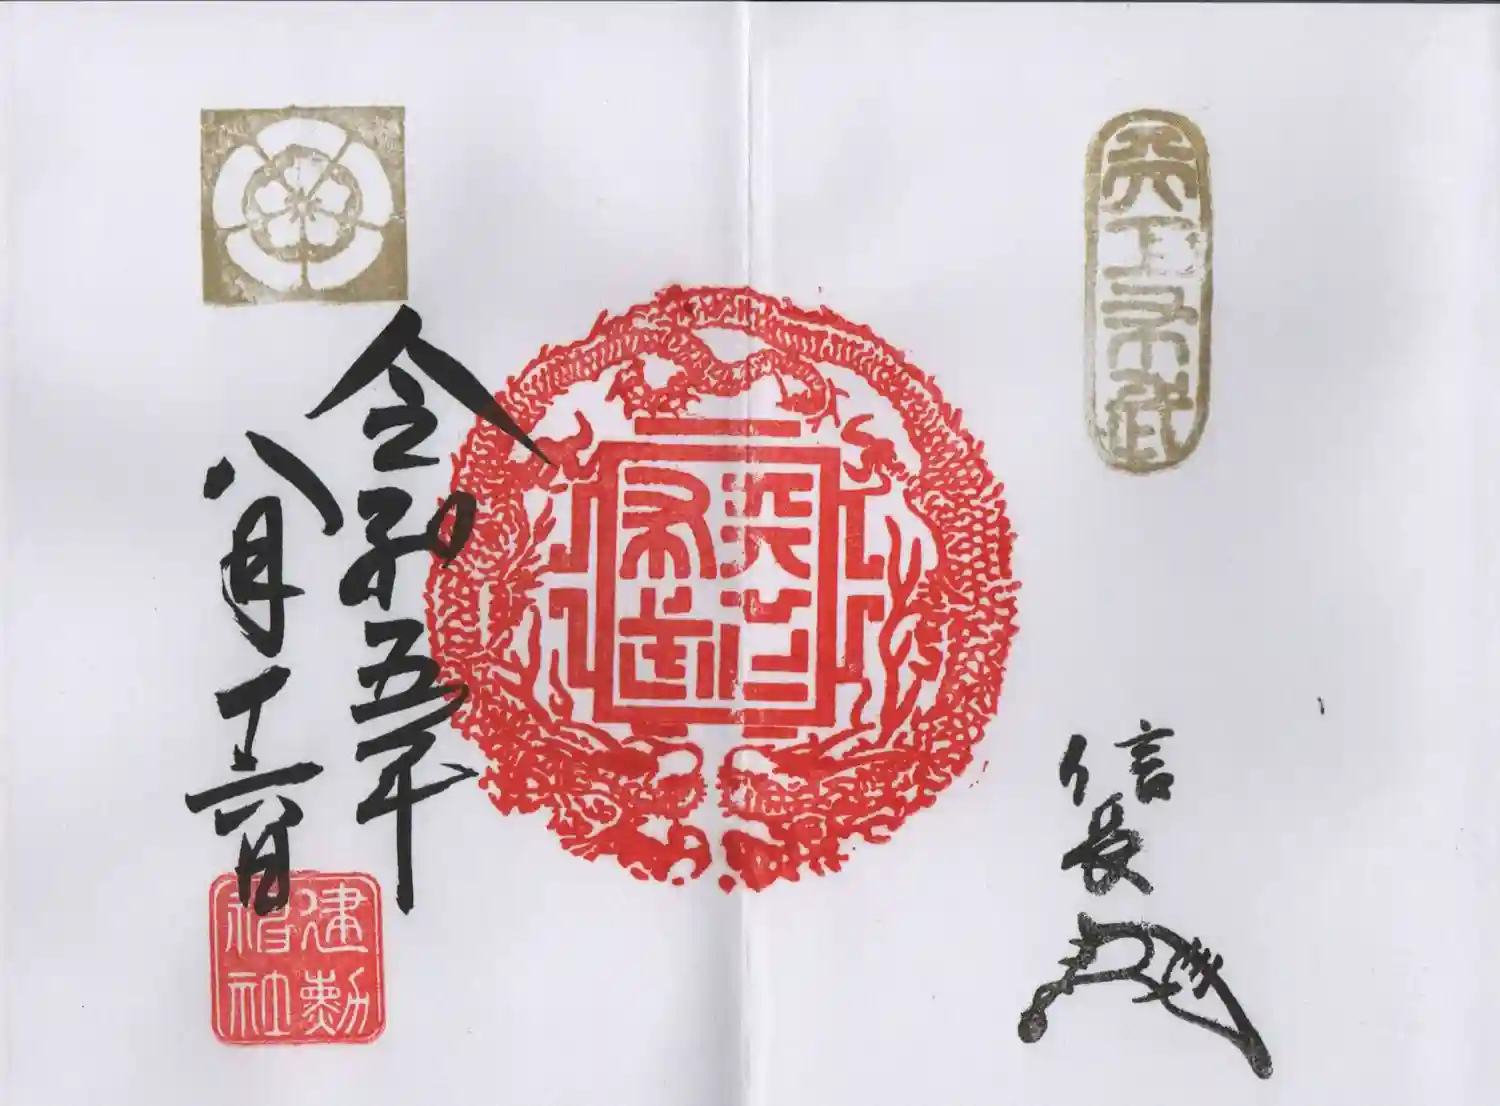 天下布武
信長
天下布武
令和五年
八月十六日
建勲神社